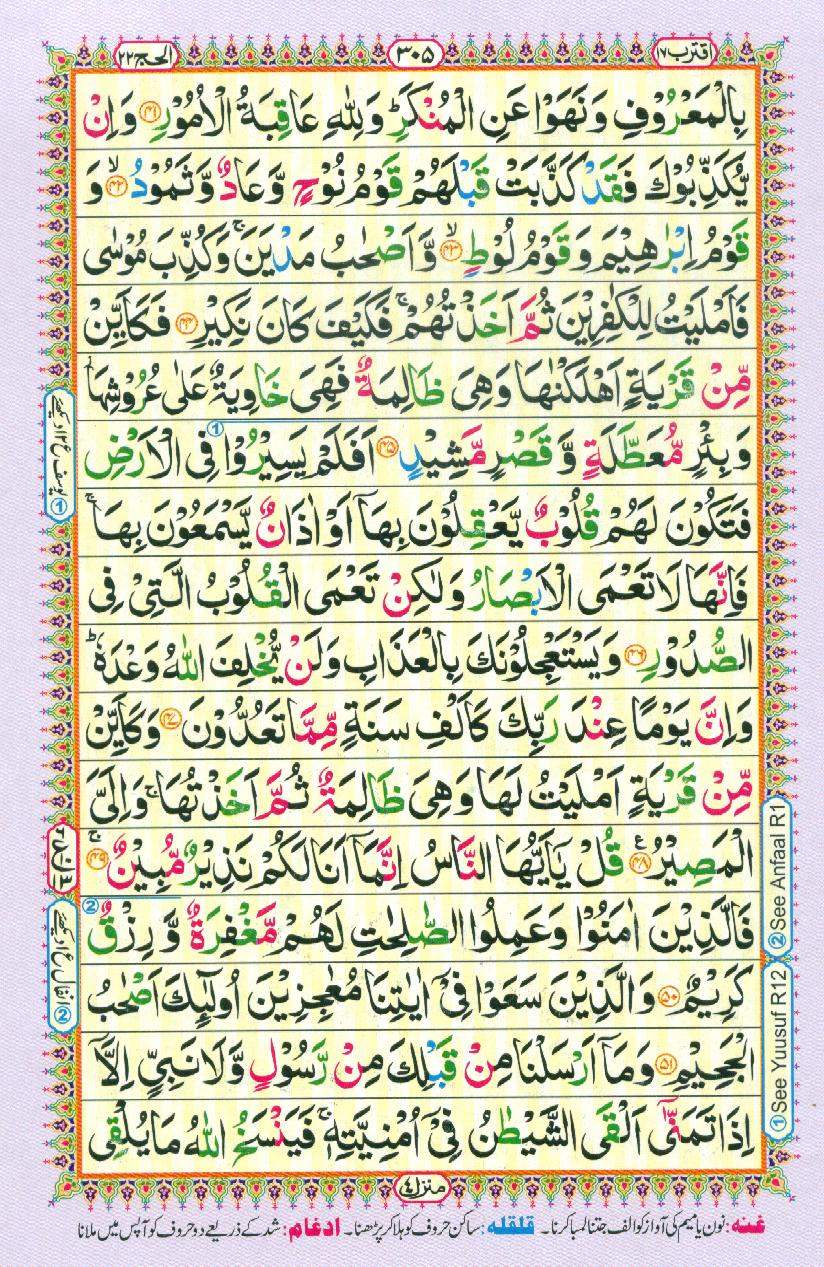 اقترب ۱۷
۳۰۵
الحج ۲۲
بِالْمَعْرُوْفِ وَنَهَوْا عَنِ الْمُنْكَرِ ؕ وَلِلّٰهِ عَاقِبَةُ الْاُمُوْرِ ﴿۴۱﴾ وَاِنْ
يُّكَذِّبُوْكَ فَقَدْ كَذَّبَتْ قَبْلَهُمْ قَوْمُ نُوْحٍ وَّعَادٌ وَّثَمُوْدُ ۙ﴿۴۲﴾ وَ
قَوْمُ اِبْرٰهِيْمَ وَقَوْمُ لُوْطٍ ۙ﴿۴۳﴾ وَّاَصْحٰبُ مَدْيَنَ ۚ وَكُذِّبَ مُوْسٰى
فَاَمْلَيْتُ لِلْكٰفِرِيْنَ ثُمَّ اَخَذْتُهُمْ ۚ فَكَيْفَ كَانَ نَكِيْرِ ﴿۴۴﴾ فَكَاَيِّنْ
مِّنْ قَرْيَةٍ اَهْلَكْنٰهَا وَهِىَ ظَالِمَةٌ فَهِىَ خَاوِيَةٌ عَلٰى عُرُوْشِهَا
وَبِئْرٍ مُّعَطَّلَةٍ وَّقَصْرٍ مَّشِيْدٍ ﴿۴۵﴾ اَفَلَمْ يَسِيْرُوْا فِى الْاَرْضِ
فَتَكُوْنَ لَهُمْ قُلُوْبٌ يَّعْقِلُوْنَ بِهَاۤ اَوْ اٰذَانٌ يَّسْمَعُوْنَ بِهَا ۚ
فَاِنَّهَا لَا تَعْمَى الْاَبْصَارُ وَلٰكِنْ تَعْمَى الْقُلُوْبُ الَّتِىْ فِى
الصُّدُوْرِ ﴿۴۶﴾ وَيَسْتَعْجِلُوْنَكَ بِالْعَذَابِ وَلَنْ يُّخْلِفَ اللّٰهُ وَعْدَهٗ ؕ
وَاِنَّ يَوْمًا عِنْدَ رَبِّكَ كَاَلْفِ سَنَةٍ مِّمَّا تَعُدُّوْنَ ﴿۴۷﴾ وَكَاَيِّنْ
مِّنْ قَرْيَةٍ اَمْلَيْتُ لَهَا وَهِىَ ظَالِمَةٌ ثُمَّ اَخَذْتُهَا ۚ وَاِلَىَّ
الْمَصِيْرُ ﴿۴۸﴾ قُلْ يٰۤاَيُّهَا النَّاسُ اِنَّمَاۤ اَنَا لَكُمْ نَذِيْرٌ مُّبِيْنٌ ۚ﴿۴۹﴾
فَالَّذِيْنَ اٰمَنُوْا وَعَمِلُوا الصّٰلِحٰتِ لَهُمْ مَّغْفِرَةٌ وَّرِزْقٌ
كَرِيْمٌ ﴿۵۰﴾ وَالَّذِيْنَ سَعَوْا فِىْۤ اٰيٰتِنَا مُعٰجِزِيْنَ اُولٰٓئِكَ اَصْحٰبُ
الْجَحِيْمِ ﴿۵۱﴾ وَمَاۤ اَرْسَلْنَا مِنْ قَبْلِكَ مِنْ رَّسُوْلٍ وَّلَا نَبِىٍّ اِلَّاۤ
اِذَا تَمَنّٰىۤ اَلْقَى الشَّيْطٰنُ فِىْۤ اُمْنِيَّتِهٖ ۚ فَيَنْسَخُ اللّٰهُ مَا يُلْقِى
② See Anfaal R1
① See Yuusuf R12
① یوسف ع۱۲ دیکھیے
② انفال ع۱ دیکھیے
منزل ۴
غنہ: نون یا میم کی آواز کو الف جتنا لمبا کرنا۔ قلقلہ: ساکن حروف کو ہلا کر پڑھنا۔ ادغام: شد کے ذریعے دو حروف کو آپس میں ملانا